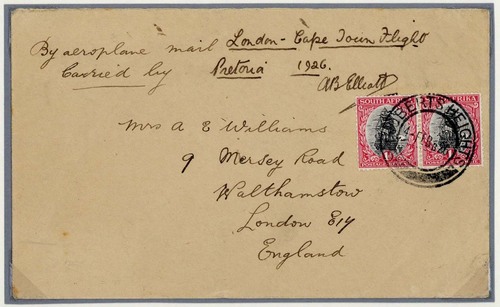 By aeroplane mail London - Cape Town Flight
Carried by Pretoria 1926.
AB Elliott
SOUTH AFRICA
ROBERTS HEIGHTS
FEB
Mrs A E Williams
9 Mersey Road
Walthamstow
London E17
England